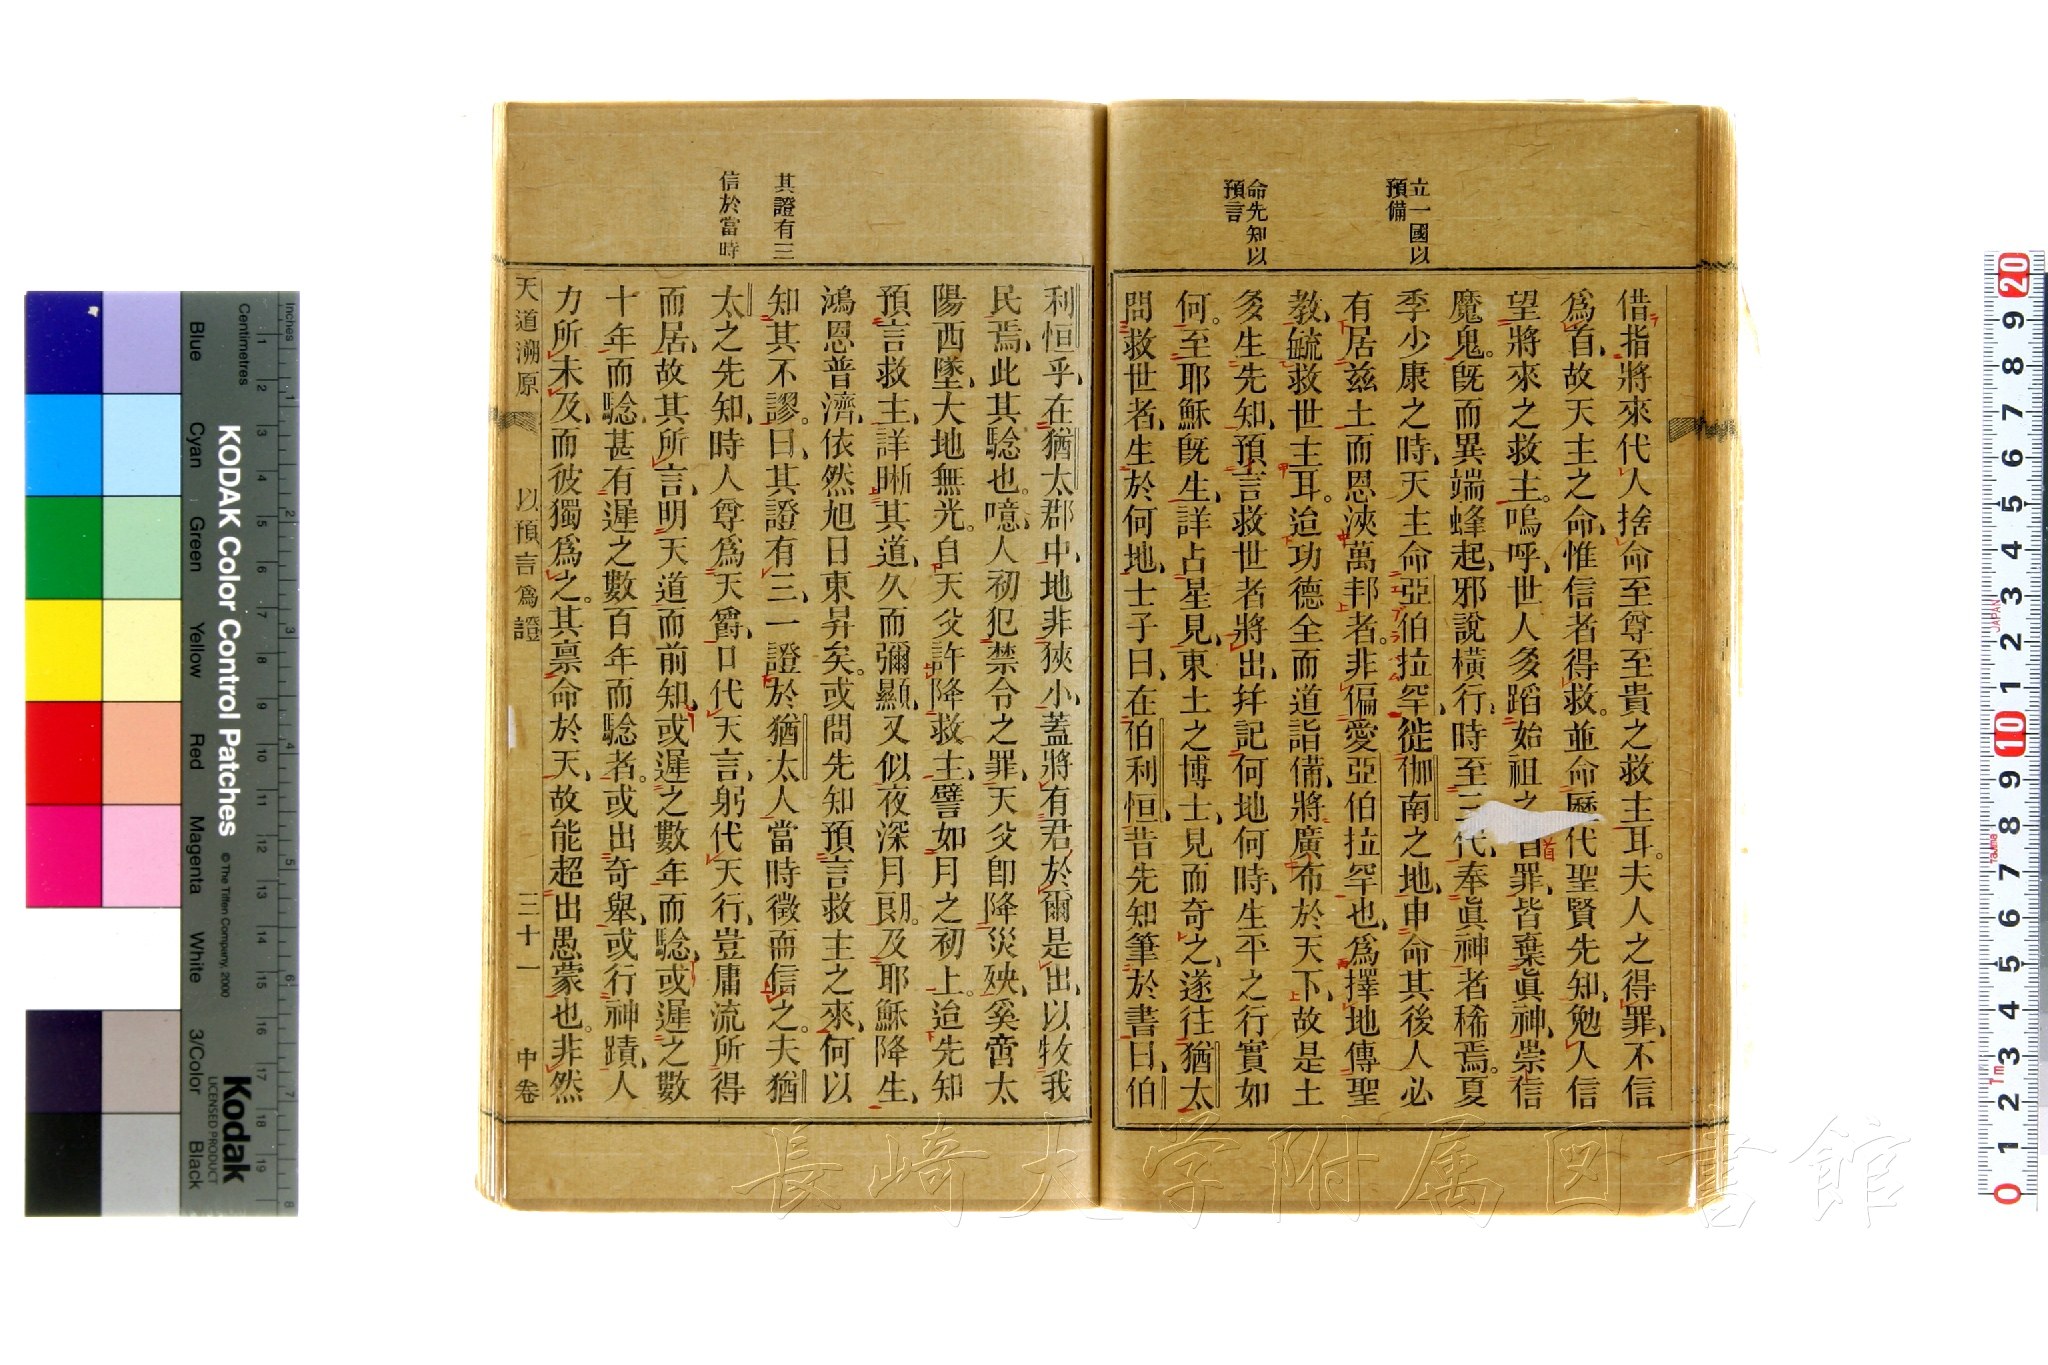 立一國以
預備
命先知以
預言
借指將來代人捨命至尊至貴之救主耳。夫人之得罪、不信
爲首、故天主之命、惟信者得救。並命歷代聖賢先知、勉人信
望將來之救主。嗚呼、世人多蹈始祖之首罪、皆棄眞神、崇信
魔鬼。旣而異端蜂起、邪說橫行、時至三代、奉眞神者稀焉。夏
季少康之時、天主命亞伯拉罕、徙伽南之地、申命其後人必
有居兹土而恩浹萬邦者。非偏愛亞伯拉罕也、爲擇地傳聖
教、毓救世主耳。迨功德全而道詣備、將廣布於天下、故是土
多生先知、預言救世者將出、幷記何地何時、生平之行實如
何。至耶穌旣生、詳占星見、東土之博士、見而奇之、遂往猶太
問救世者、生於何地、士子曰、在伯利恒、昔先知筆於書曰、伯
其證有三
信於當時
利恒乎、在猶太郡中、地非狹小、蓋將有君、於爾是出、以牧我
民焉、此其驗也。噫、人初犯禁令之罪、天父卽降災殃、奚啻太
陽西墜、大地無光。自天父許降救主、譬如月之初上。迨先知
預言救主、詳晰其道、久而彌顯、又似夜深月朗。及耶穌降生、
鴻恩普濟、依然旭日東昇矣。或問先知預言救主之來、何以
知其不謬。曰、其證有三、一證於猶太人當時徵而信之。夫猶
太之先知、時人尊爲天爵、口代天言、躬代天行、豈庸流所得
而居、故其所言、明天道而前知、或遲之數年而驗、或遲之數
十年而驗、甚有遲之數百年而驗者。或出奇舉、或行神蹟、人
力所未及、而彼獨爲之。其禀命於天、故能超出愚蒙也。非然
天道溯原 以預言爲證 三十一 中卷
KODAK Color Control Patches
© The Tiffen Company, 2000
Kodak
LICENSED PRODUCT
Inches
Centimetres
Blue
Cyan
Green
Yellow
Red
Magenta
White
3/Color
Black
長崎大学附属図書館